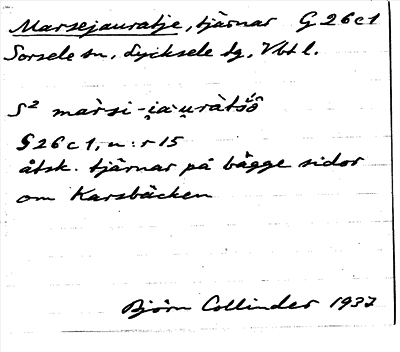 Marsejauratje, tjärnar G 26 c 1
Sorsele sn, Lycksele tg, Vbtl.
S² marsi-
§ 26 c 1, n: r 15
åtsk. tjärnar på bägge sidor
om Karsbäcken
Björn Collinder 1937